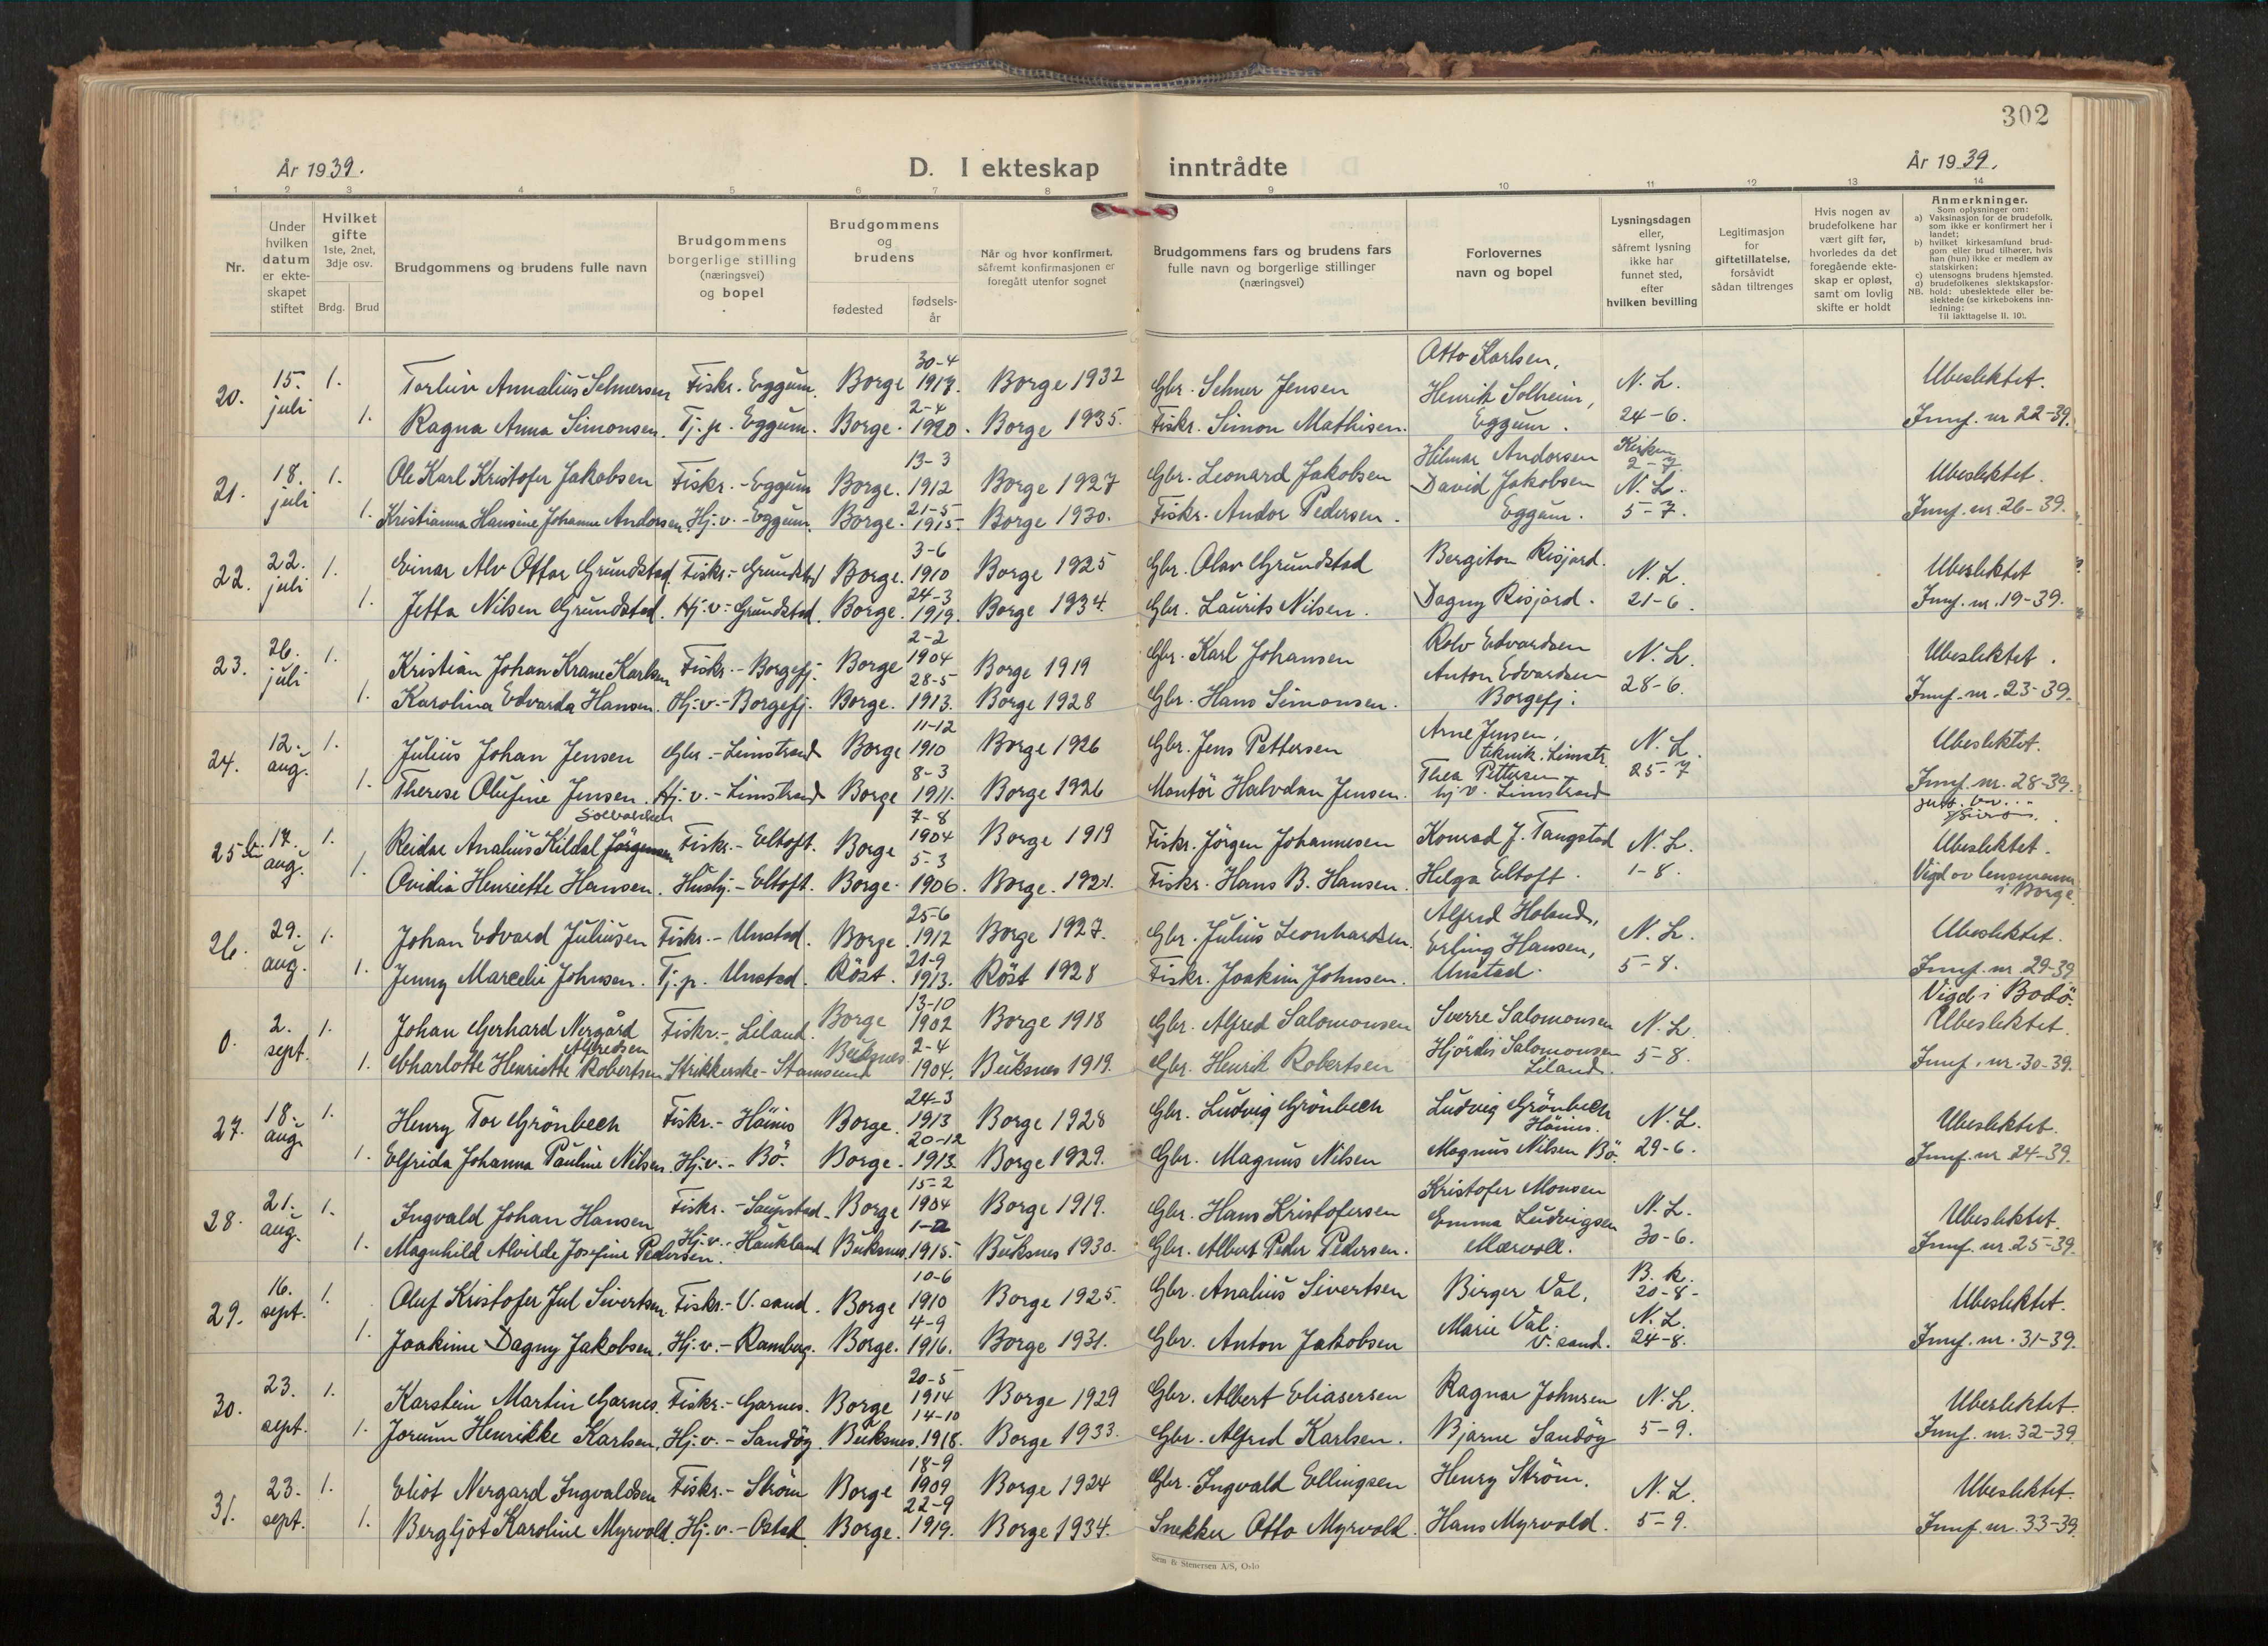 302
År 1939.
D. I ekteskap inntrådte
År 1939.
1 2 3 4 5 6 7 8 9 10 11 12 13 14
Nr.
Under hvilken datum er ekte-skapet stiftet
Hvilket gifte 1ste, 2net, 3dje osv.
Brdg. Brud
Brudgommens og brudens fulle navn
Brudgommens borgerlige stilling (næringsvei) og bopel
Brudgommens og brudens
fødested
fødsels-år
Når og hvor konfirmert, såfremt konfirmasjonen er foregått utenfor sognet
Brudgommens fars og brudens fars fulle navn og borgerlige stillinger (næringsvei)
Forlovernes navn og bopel
Lysningsdagen eller, såfremt lysning ikke har funnet sted, efter hvilken bevilling
Legitimasjon for giftetillatelse, forsåvidt sådan tiltrenges
Hvis nogen av brudefolkene har vært gift før, hvorledes da det foregående ekte-skap er opløst, samt om lovlig skifte er holdt
Anmerkninger.
Som oplysninger om:
a) Vaksinasjon for de brudefolk, som ikke er konfirmert her i landet;
b) hvilket kirkesamfund brud-gom eller brud tilhører, hvis han (hun) ikke er medlem av statskirken;
c) utensogns brudens hjemsted.
d) brudefolkenes slektskapsfor-hold: ubeslektede eller be-slektede (se kirkebokens inn-ledning:
NB.
Til iakttagelse II. 10).
20. 15. juli 1. Torleiv Annalius Selmersen Fiskr. Eggum. Borge 30-4 1917. Borge 1932 Gbr. Selmer Jensen Otto Karlsen, Henrik Solheim, Eggum. N. L. 24-6. Ubeslektet.
1. Ragna Anna Simonsen. Tj. p. Eggum. Borge. 2-4 1920. Borge 1935. Fiskr. Simon Mathisen. Innf. nr 22-39.
21. 18. juli 1. Ole Karl Kristofer Jakobsen Fiskr. - Eggum Borge. 13-3 1912 Borge 1927 Gbr. Leonard Jakobsen Hilmar Andorsen David Jakobsen Eggum. Kirken 2-7. N. L. 5-7. Ubeslektet.
1. Kristianna Hansine Johanne Andorsen Hj. v. - Eggum. Borge. 21-5 1915. Borge 1930. Fiskr. Andor Pedersen. Innf. nr. 26-39.
22. 22. juli 1. Einar Alv Ottar Grundstad Fiskr. - Grundstad Borge. 3-6 1910 Borge 1925 Gbr. Olav Grundstad Bergiton Risjord. Dagny Risjord. N. L. 21-6. Ubeslektet
1. Jetta Nilsen Grundstad. Hj. v. - Grundstad. Borge. 24-3 1919. Borge 1934. Gbr. Laurits Nilsen. Innf. nr. 19-39.
23. 26. juli 1. Kristian Johan Krane Karlsen Fiskr. - Borgefj. Borge 2-2 1904 Borge 1919 Gbr. Karl Johansen Rolv Edvardsen Anton Edvardsen Borgefj. N. L. 28-6. Ubeslektet.
1. Karolina Edvarda Hansen. Hj. v. - Borgefj. Borge. 28-5 1913. Borge 1928 Gbr. Hans Simonsen. Innf. nr. 23-39.
24. 12. aug. 1. Julius Johan Jensen Gbr. - Limstrand Borge 11-12 1910 Borge 1926 Gbr. Jens Pettersen Arne Jensen, teknik. Limstr. Thea Pettersen hj. v. Limstrand N. L. 25-7 Ubeslektet.
1. Therese Olufine Jensen. Hj. v. - Limstrand Borge 8-3 1911. Borge 1926 Montör Halvdan Jensen. Innf. nr. 28-39.
25 17. aug. 1. Reidar Analius Kildal Jörgensen Fiskr. - Eltoft. Borge 7-8 1904 Borge 1919 Fiskr. Jörgen Johannesen Konrad J. Tangstad Helga Eltoft. N. L. 1-8. Ubeslektet.
1. Ovidia Henriette Hansen. Husbj. - Eltoft. Borge. 5-3 1906. Borge. 1921. Fiskr. Hans B. Hansen. Vigd av lensmannen i Borge.
26. 29. aug. 1. Johan Edvard Juliusen Fiskr. - Unstad. Borge. 25-6 1912 Borge 1927. Gbr. Julius Leonhardsen. Alfred Holand, Erling Hansen, Unstad. N. L. 5-8. Ubeslektet.
1. Jenny Marcelie Johnsen. Tj. p. Unstad. Röst. 21-9 1913. Röst 1928 Fiskr. Joakim Johnsen. Innf. nr. 29-39
0. 2. sept. 1. Johan Gerhard Nergård Alfredsen Fiskr. - Liland. Borge 13-10 1902 Borge 1918 Gbr. Alfred Salomonsen Sverre Salomonsen Hjördis Salomonsen Liland. N. L. 5-8. Vigd i Bodö. Ubeslektet.
1. Charlotte Henriette Robertsen Strikkerske - Stamsund Buksnes 2-4 1904. Buksnes 1919. Gbr. Henrik Robertsen Innf. nr. 30-39.
27. 18. aug. 1. Henry Tor Grönbech Fiskr. - Höines Borge. 24-3 1913 Borge 1928 Gbr. Ludvig Grönbech Ludvig Grönbech Höines. Magnus Nilsen Bö. N. L. 29-6. Ubeslektet.
1. Elfrida Johanna Pauline Nilsen. Hj. v. - Bö. Borge. 20-12 1913. Borge 1929. Gbr. Magnus Nilsen Innf. nr 24-39.
28. 21. aug. 1. Ingvald Johan Hansen Fiskr. - Saupstad. Borge 15-2 1904 Borge 1919. Gbr. Hans Kristofersen Kristofer Monsen Emma Ludvigsen Mærvoll. N. L. 30-6. Ubeslektet.
1. Magnhild Alvilde Josefine Pedersen. Hj. v. Haukland Buksnes. 1-2 1915. Buksnes 1930. Gbr. Albert Peder Pedersen. Innf. nr. 25-39.
29. 16. sept. 1. Oluf Kristofer Jul Sivertsen. Fiskr. - V. sand. Borge 10-6 1910 Borge 1925. Gbr. Analius Sivertsen Birger Val, Marie Val. V. sand. B. k. 20-8- N. L. 24-8. Ubeslektet.
1. Joakime Dagny Jakobsen. Hj. v. - Ramberg. Borge. 4-9 1916. Borge 1931. Gbr. Anton Jakobsen Innf. nr. 31-39.
30. 23. sept. 1. Karstein Martin Garnes. Fiskr. - Garnes. Borge 20-5 1914 Borge 1929 Gbr. Albert Eliasersen Ragnar Johnsen Bjarne Sandöy N. L. 5-9. Ubeslektet.
1. Jorunn Henrikke Karlsen, Hj. v. - Sandöy. Buksnes. 14-10 1918. Borge 1933. Gbr. Alfred Karlsen. Innf. nr. 32-39.
31. 23. sept. 1. Eliot Nergard Ingvaldsen Fiskr. - Ström Borge 18-9 1909 Borge 1924 Gbr. Ingvald Ellingsen Henry Ström. Hans Myrvold. N. L. 5-9. Ubeslektet.
1. Bergljot Karoline Myrvold. Hj. v. - Ostad. Borge. 22-9 1919. Borge 1934. Snekker Otto Myrvold. Innf. nr. 33-39.
Sem & Stenersen A/S, Oslo